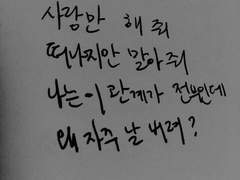 사랑만 해 줘
떠나지만 말아줘
나는 이 관계가 전부인데
왜 자꾸 날 버려?